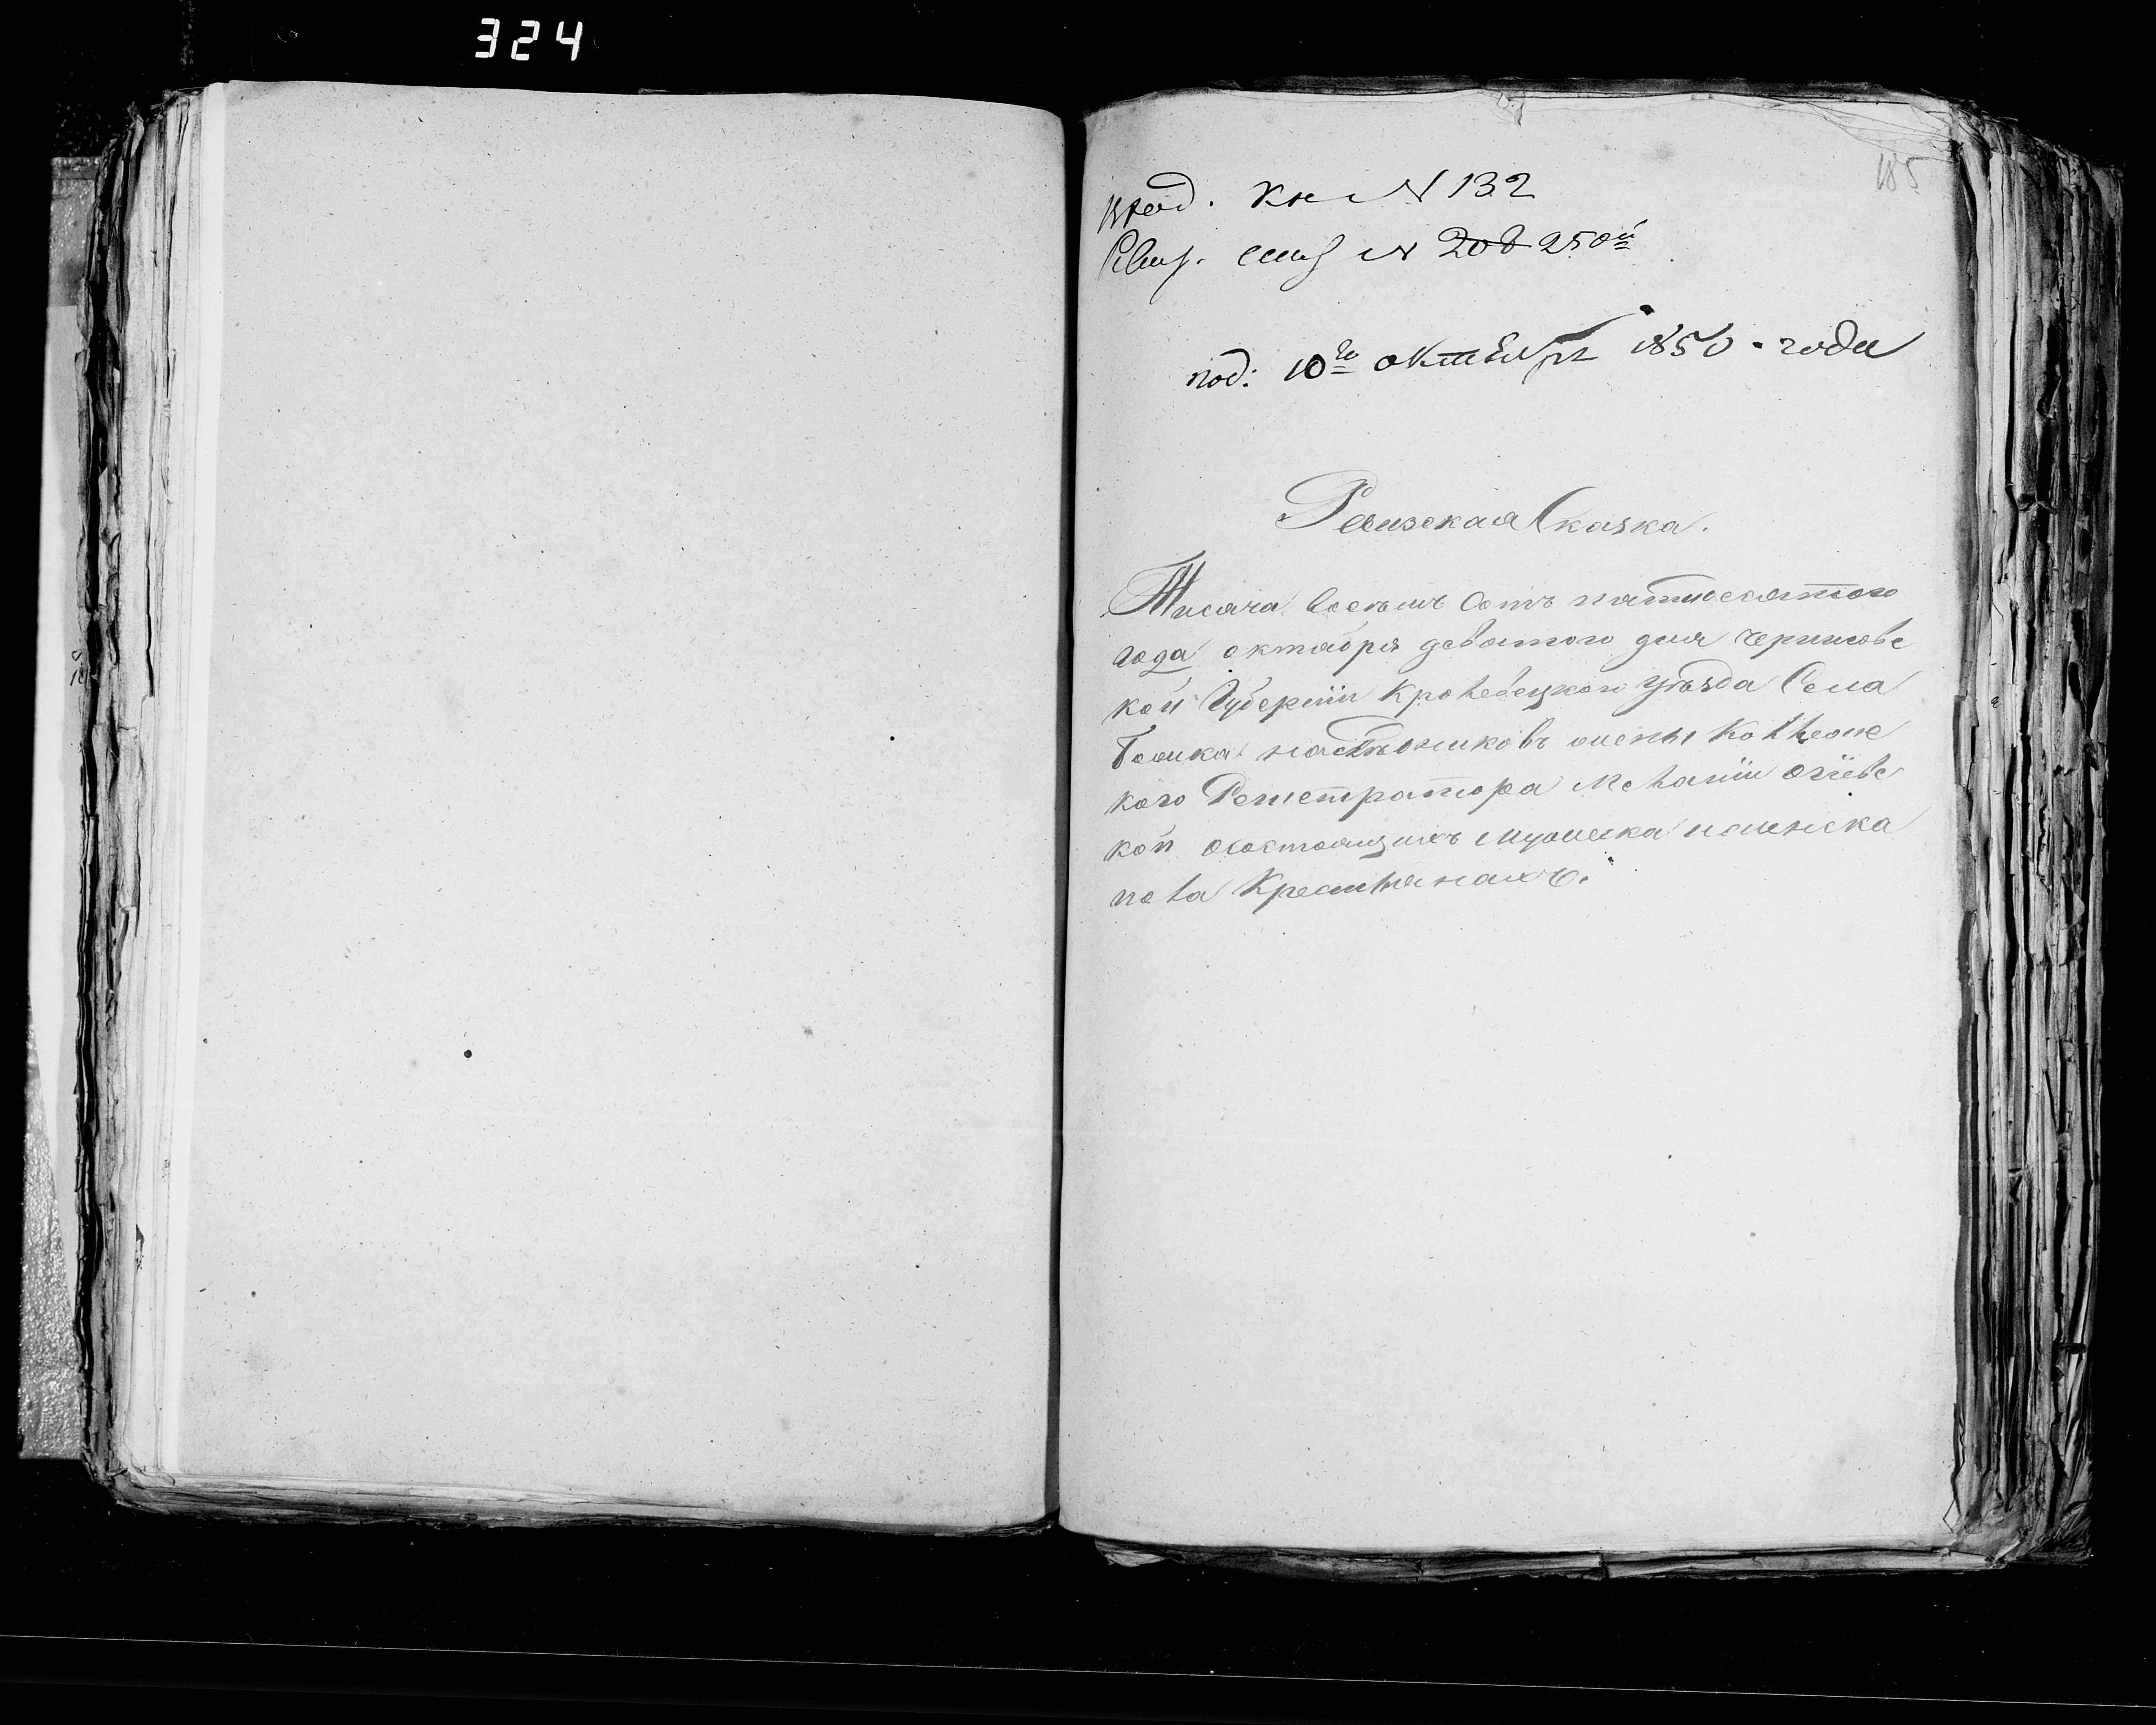 324
185
Вход. Кн N 132
Ревиз. N 208 250й
под: 10го октября 1850 года
Ревизская Сказка.
Тисяча восемь Сотъ пятидесятого
года октабря девятого дня Чернигове
кой Губернии Кролевецкого уезда Села
наследниковъ жены Коллеже
кого Регистратора Меланіи
кой осостоящихъ мужеска иженска
пола Крестянахъ.